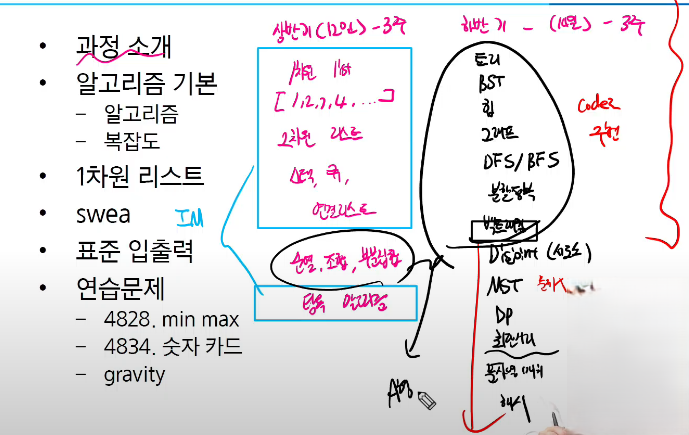 과정 소개
알고리즘 기본
- 알고리즘
- 복잡도
1차원 리스트
swea IM
표준 입출력
연습문제
- 4828. min max
- 4834. 숫자 카드
- gravity
상반기 (12일) - 3주
1차원 list
[1,2,3,4, ....]
2차원 리스트
스택, 큐,
연결리스트
순열, 조합, 부분집합
탐욕 알고리즘
하반기 - (10일) - 3주
트리
BST
힙
그래프
DFS/BFS
분할정복
백트래킹
Disjoint (서로소)
MST
DP
최단거리
문자열 매치
해시
구현